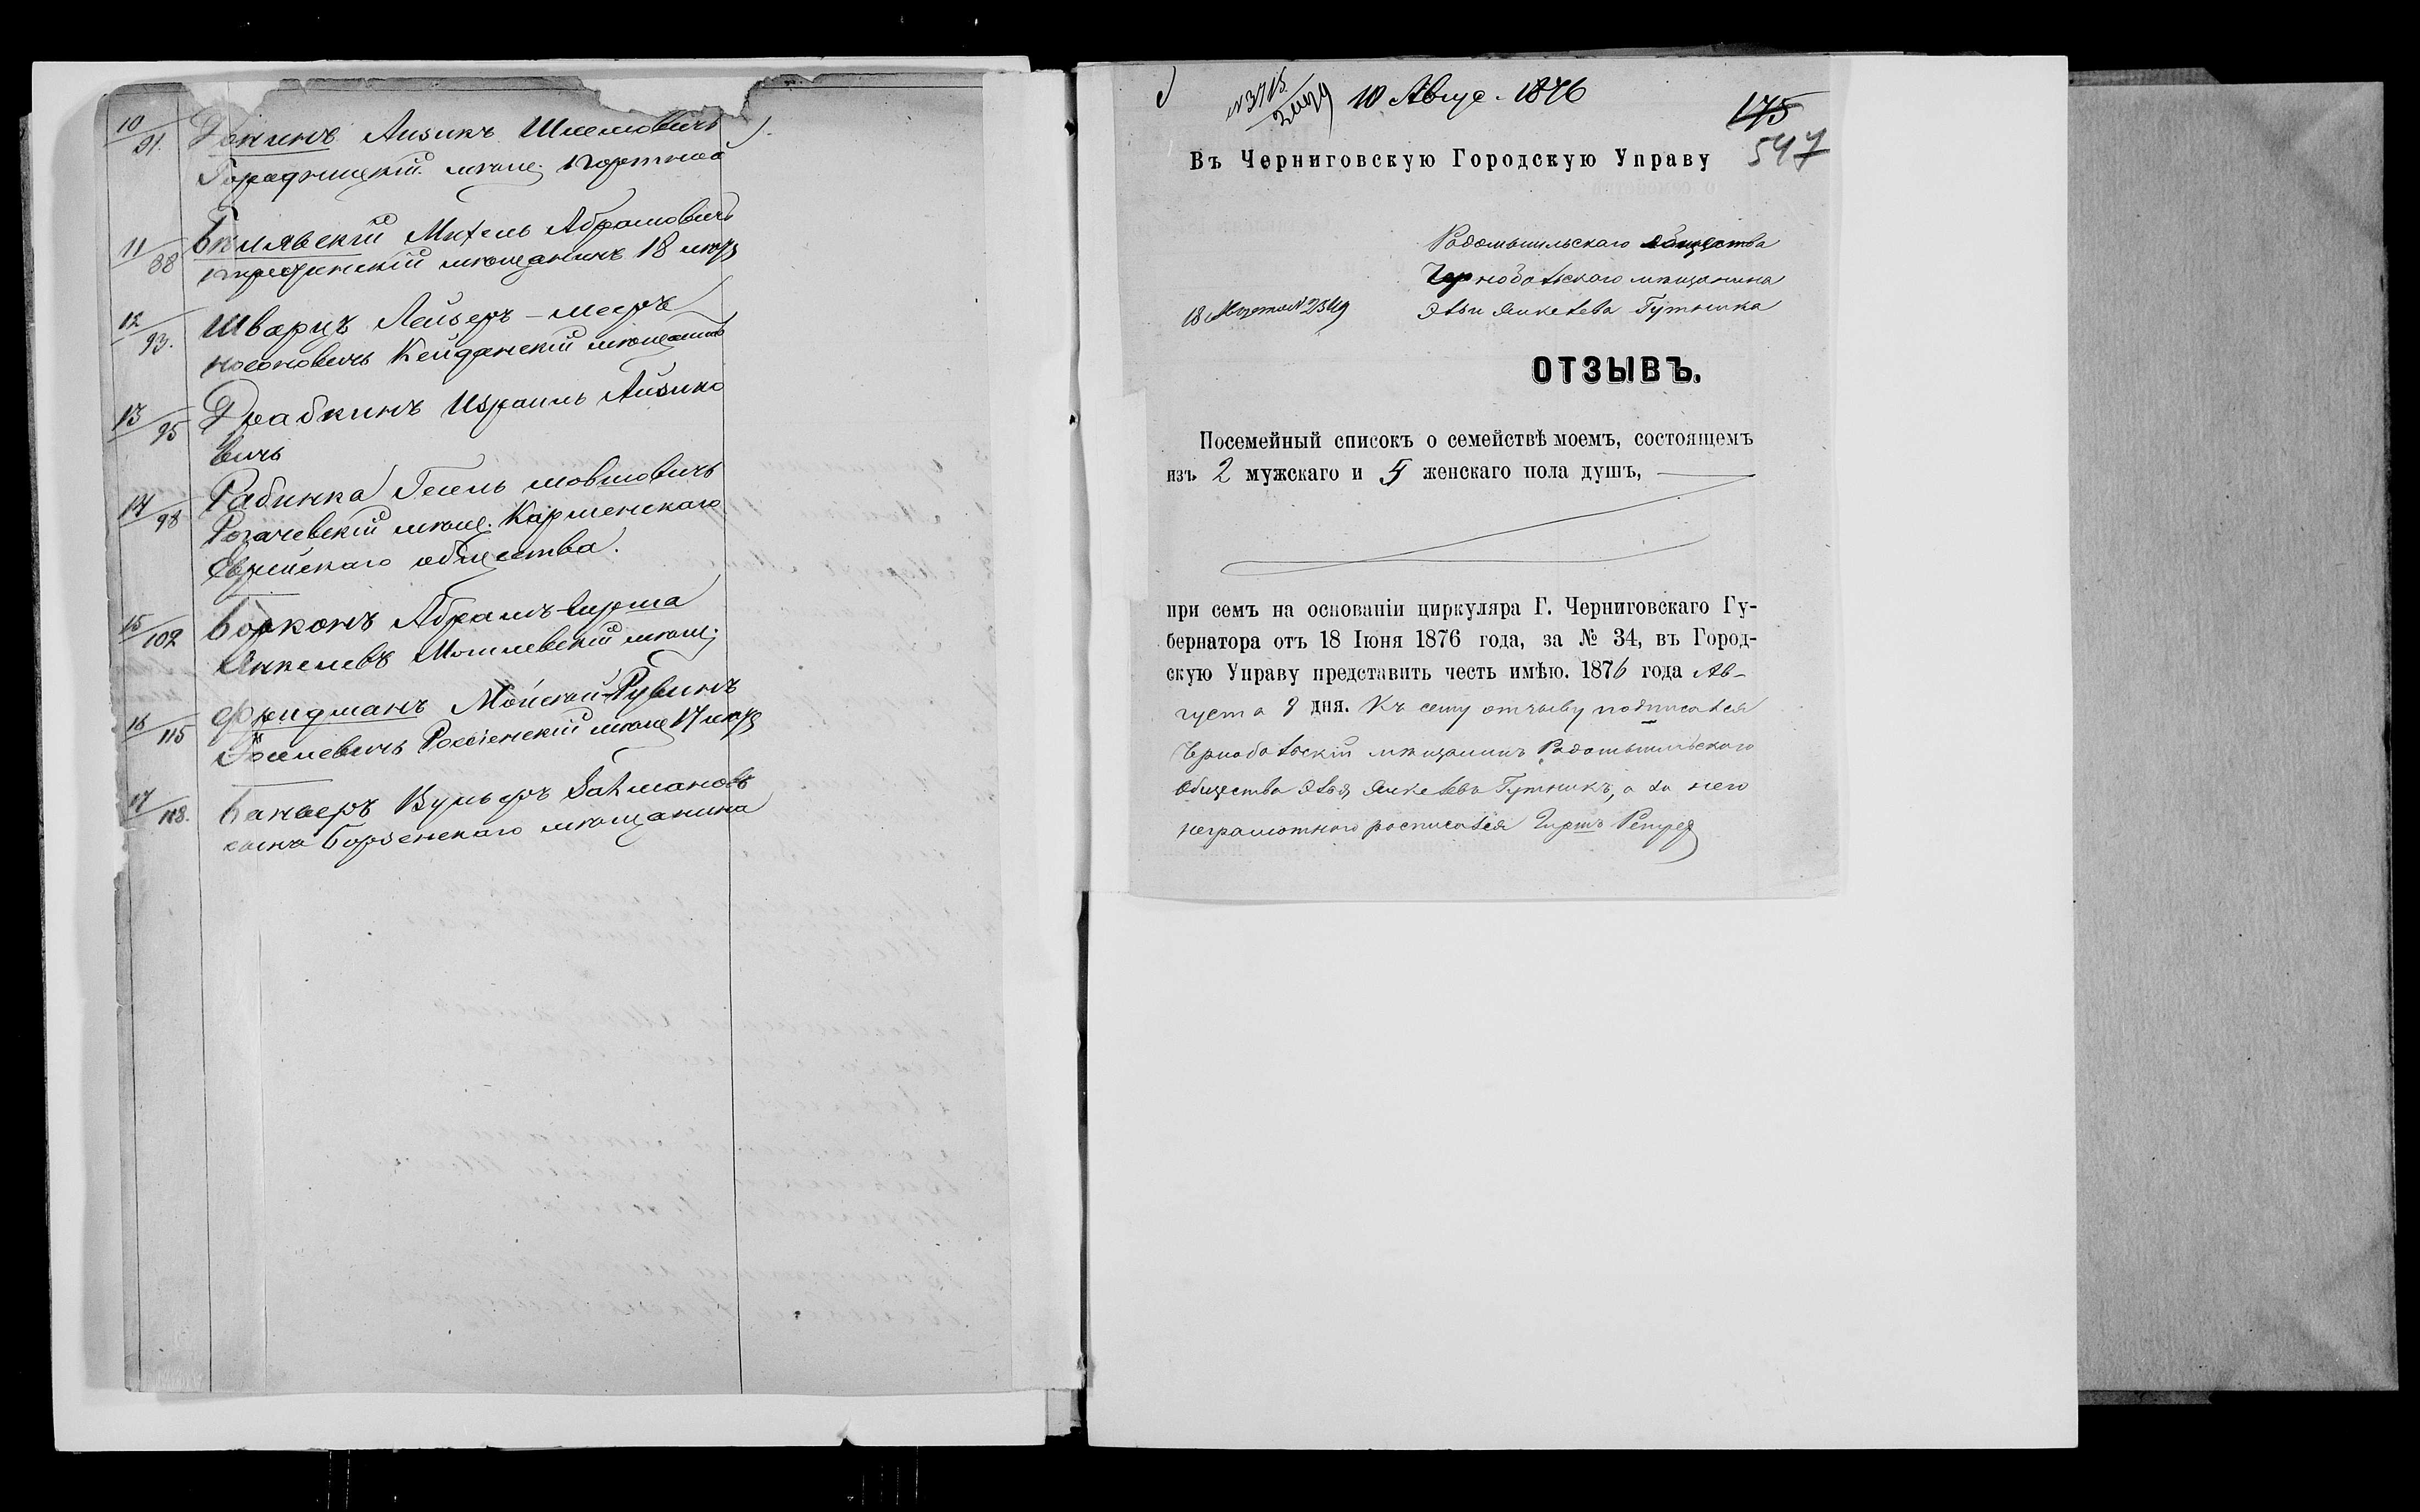 10/91. Генинъ Аизикъ Шлемовичъ
Городницкій мѣщ. портной
11/88 Билявскій Михель Абрамовичъ
мѣщанинъ 18
12/93. Шварцъ Лейзеръ-Мееръ
Носоновичъ Кейданскій мѣщанинъ
13/95 Драбкинъ Израиль Айзико
вичъ
14/98 Рабинка Гесель Мовшовичъ
Рогачевскій мѣщ. Карпенскаго
Еврейскаго общества.
15/102 Борконъ Абрамъ-Гирша
Янкелевъ Могилевскій мѣщ.
16/115 Фридманъ Мойсей-Рувинъ
Іоселевичъ Россіенскій мѣщ 17
17/118. Банверъ Вульфъ Залмановъ
сынъ Борзенскаго мѣщанина
10 Авгус. 1876
175
547
Въ Черниговскую Городскую Управу
Радомысльскаго общества
Чернобыльскаго мѣщанина
18 Августа №2549
Эльи Янкелева Гутника
ОТЗЫВЪ.
Посемейный списокъ о семействѣ моемъ, состоящемъ
изъ 2 мужскаго и 5 женскаго пола душъ,
при семъ на основаніи циркуляра Г. Черниговскаго Гу-
бернатора отъ 18 Іюня 1876 года, за № 34, въ Город-
скую Управу представить честь имѣю. 1876 года Ав-
густа 9 дня. Къ сему отзыву подписался
Чернобыльскій мѣщанинъ Радомысльскаго
Общества Элья Янкелевъ Гутникъ, а за него
неграмотнаго росписался Гиршъ